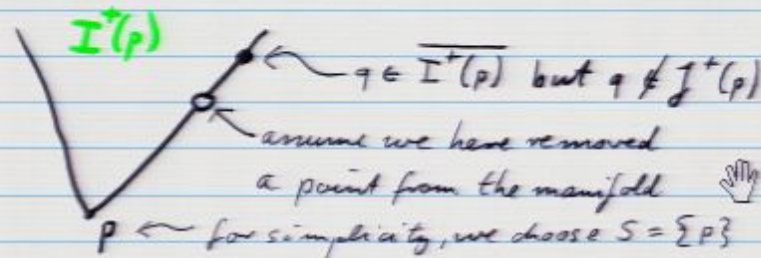 I⁺(p)
q ∈ \overline{I⁺(p)} but q ∉ J⁺(p)
assume we have removed
a point from the manifold
p ← for simplicity, we choose S = {p}